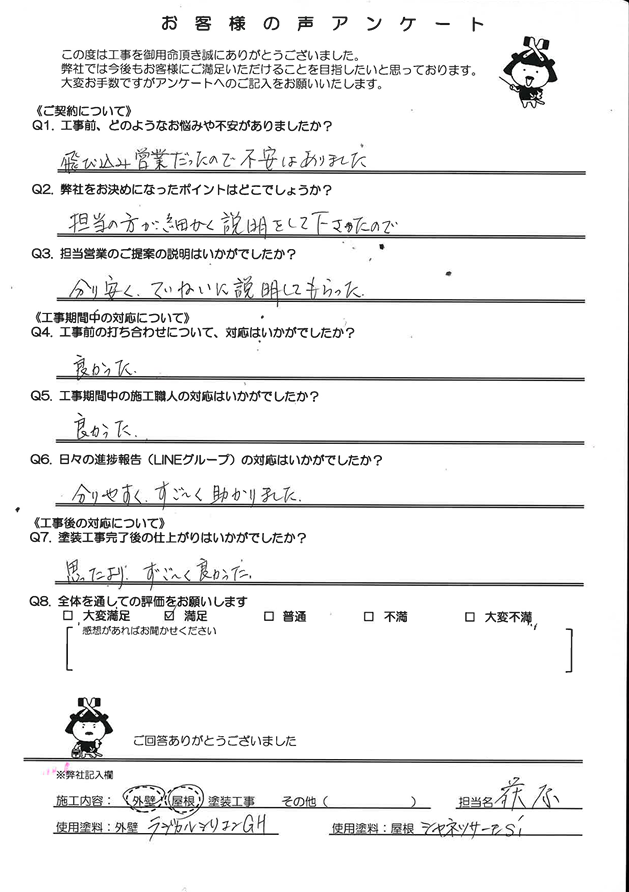 お客様の声アンケート
この度は工事を御用命頂き誠にありがとうございました。
弊社では今後もお客様にご満足いただけることを目指したいと思っております。
大変お手数ですがアンケートへのご記入をお願いいたします。
《ご契約について》
Q1. 工事前、どのようなお悩みや不安がありましたか？
飛び込み営業だったので不安はありました
Q2. 弊社をお決めになったポイントはどこでしょうか？
担当の方が細かく説明をして下さったので
Q3. 担当営業のご提案の説明はいかがでしたか？
分り安く、ていねいに説明してもらった.
《工事期間中の対応について》
Q4. 工事前の打ち合わせについて、対応はいかがでしたか？
良かった.
Q5. 工事期間中の施工職人の対応はいかがでしたか？
良かった.
Q6. 日々の進捗報告（LINEグループ）の対応はいかがでしたか？
分りやすく、すご〜く助かりました.
《工事後の対応について》
Q7. 塗装工事完了後の仕上がりはいかがでしたか？
思ったより、すご〜く良かった.
Q8. 全体を通しての評価をお願いします
□ 大変満足 ☑ 満足 □ 普通 □ 不満 □ 大変不満
感想があればお聞かせください
ご回答ありがとうございました
※弊社記入欄
施工内容： 外壁 屋根 塗装工事 その他（ ） 担当名 萩原
使用塗料：外壁 ラジカルシリコンGH 使用塗料：屋根 シャネツサーモSi